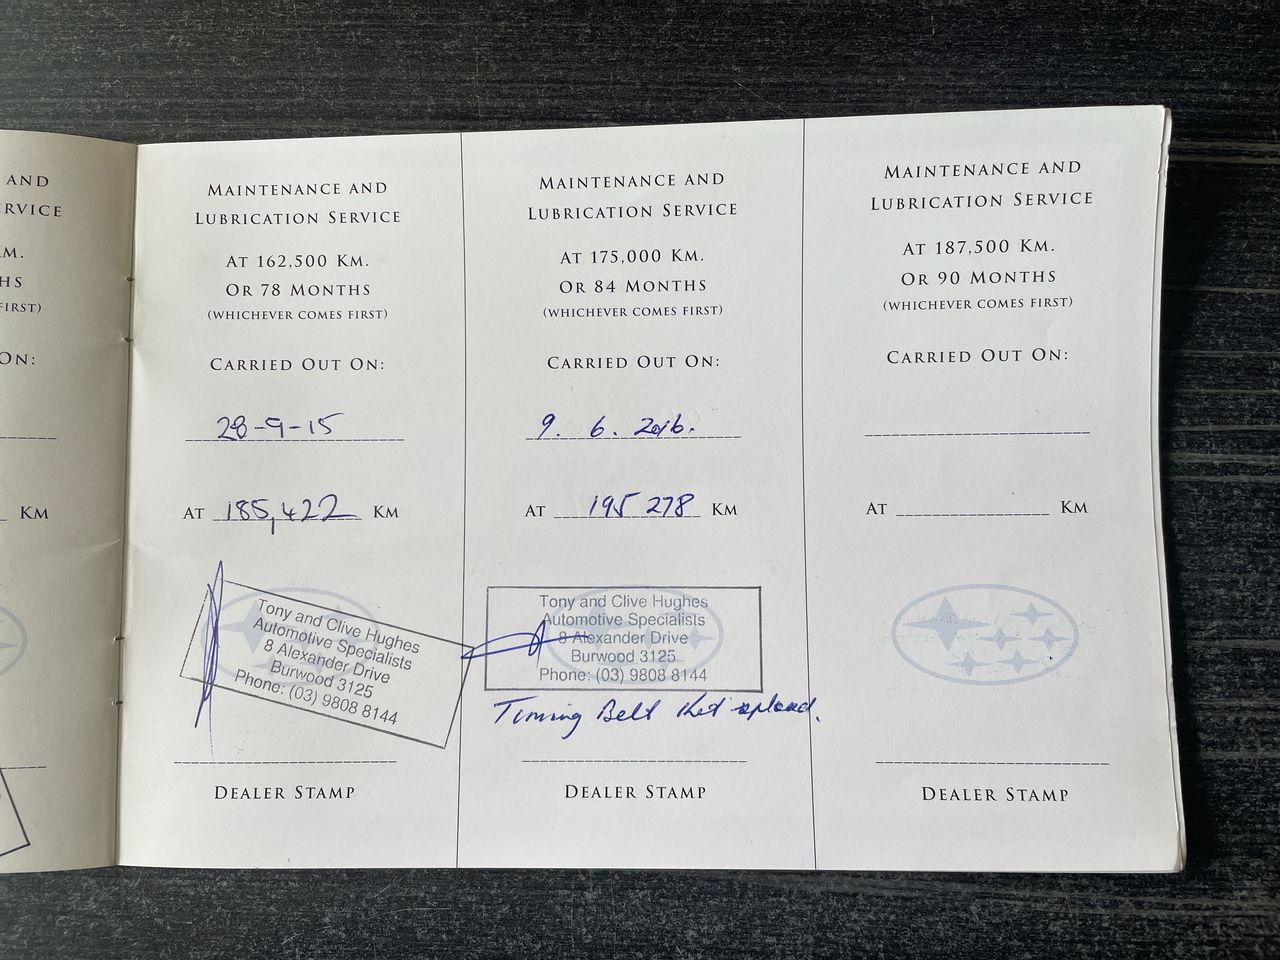 AND
RVICE
M.
HS
FIRST)
ON:
KM
MAINTENANCE AND
LUBRICATION SERVICE
AT 162,500 KM.
OR 78 MONTHS
(WHICHEVER COMES FIRST)
CARRIED OUT ON:
28-9-15
AT 185,422 KM
Tony and Clive Hughes
Automotive Specialists
8 Alexander Drive
Burwood 3125
Phone: (03) 9808 8144
DEALER STAMP
MAINTENANCE AND
LUBRICATION SERVICE
AT 175,000 KM.
OR 84 MONTHS
(WHICHEVER COMES FIRST)
CARRIED OUT ON:
9. 6. 2016.
AT 195 278 KM
Tony and Clive Hughes
Automotive Specialists
8 Alexander Drive
Burwood 3125
Phone: (03) 9808 8144
Timing Belt
DEALER STAMP
MAINTENANCE AND
LUBRICATION SERVICE
AT 187,500 KM.
OR 90 MONTHS
(WHICHEVER COMES FIRST)
CARRIED OUT ON:
AT KM
DEALER STAMP